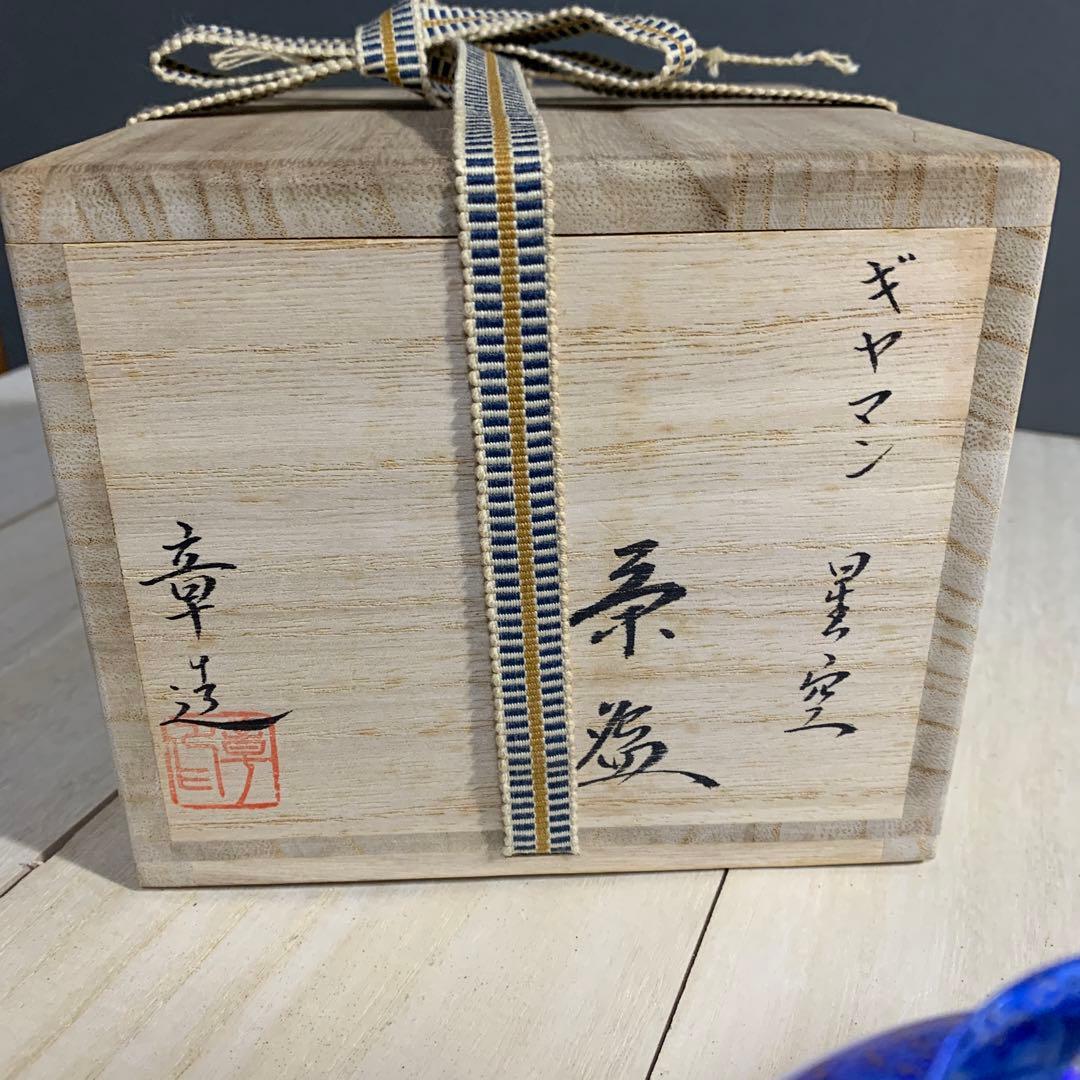 ギヤマン 星空
茶盌
章造